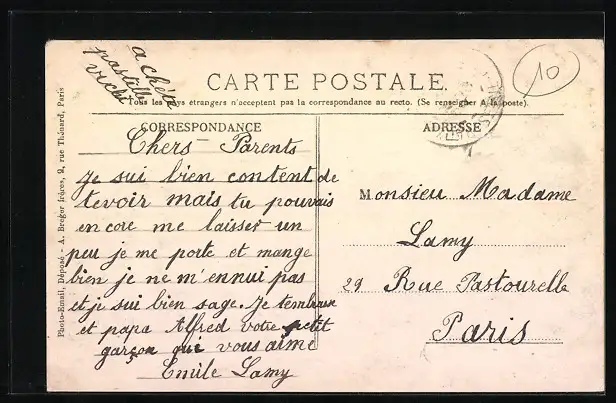 a chété
pastille
vichi
10
CARTE POSTALE.
Tous les pays étrangers n'acceptent pas la correspondance au recto. (Se renseigner à la poste).
CORRESPONDANCE
ADRESSE
Chers Parents
Je sui bien content de
tevoir mais tu pouvais
encore me laisser un
peu je me porte et mange
bien je ne m'ennui pas
et je sui bien sage. Je tembrasse
et papa Alfred votre petit
garçon qui vous aime
Emile Lamy
Monsieur Madame
Lamy
29 Rue Pastourelle
Paris
Photo-Email, Déposé - A. Breger frères, 9, rue Thénard, Paris